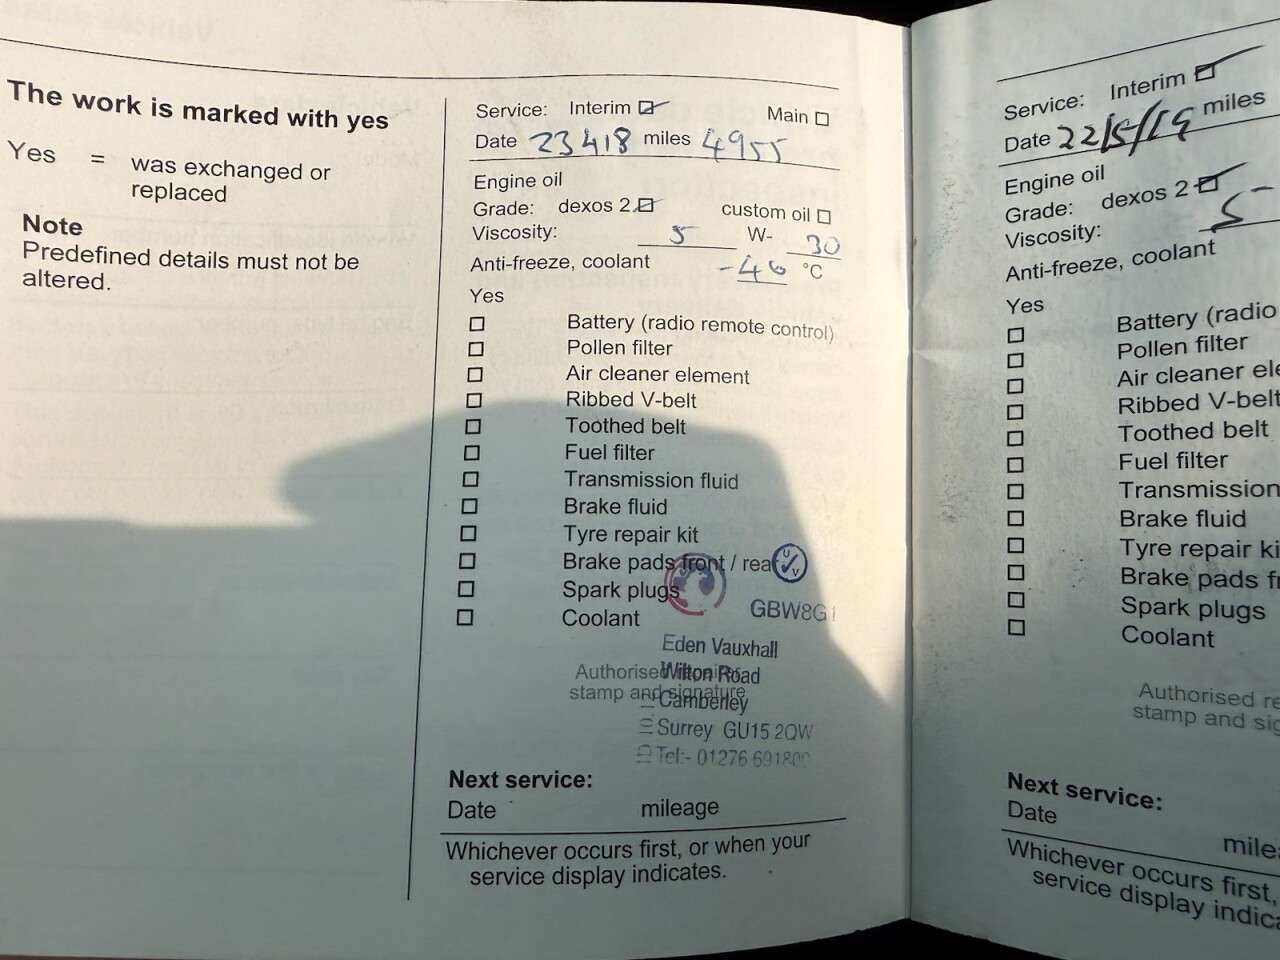 The work is marked with yes
Yes = was exchanged or
replaced
Note
Predefined details must not be
altered.
Service: Interim Main
Date 23418 miles 4955
Engine oil
Grade: dexos 2 custom oil
Viscosity: 5 W- 30
Anti-freeze, coolant -46 °C
Yes
Battery (radio remote control)
Pollen filter
Air cleaner element
Ribbed V-belt
Toothed belt
Fuel filter
Transmission fluid
Brake fluid
Tyre repair kit
Brake pads front / rea
Spark plugs
Coolant
UV
GBW8G
Eden Vauxhall
Wilton Road
Camberley
Surrey GU15 2QW
Tel:- 01276 691800
Authorised
stamp and signature
Next service:
Date mileage
Whichever occurs first, or when your
service display indicates.
Service: Interim
Date 22/5/19 miles
Engine oil
Grade: dexos 2
Viscosity: 5
Anti-freeze, coolant
Yes
Battery (radio
Pollen filter
Air cleaner ele
Ribbed V-belt
Toothed belt
Fuel filter
Transmission
Brake fluid
Tyre repair ki
Brake pads fr
Spark plugs
Coolant
Authorised re
stamp and sig
Next service:
Date
milea
Whichever occurs first,
service display indica